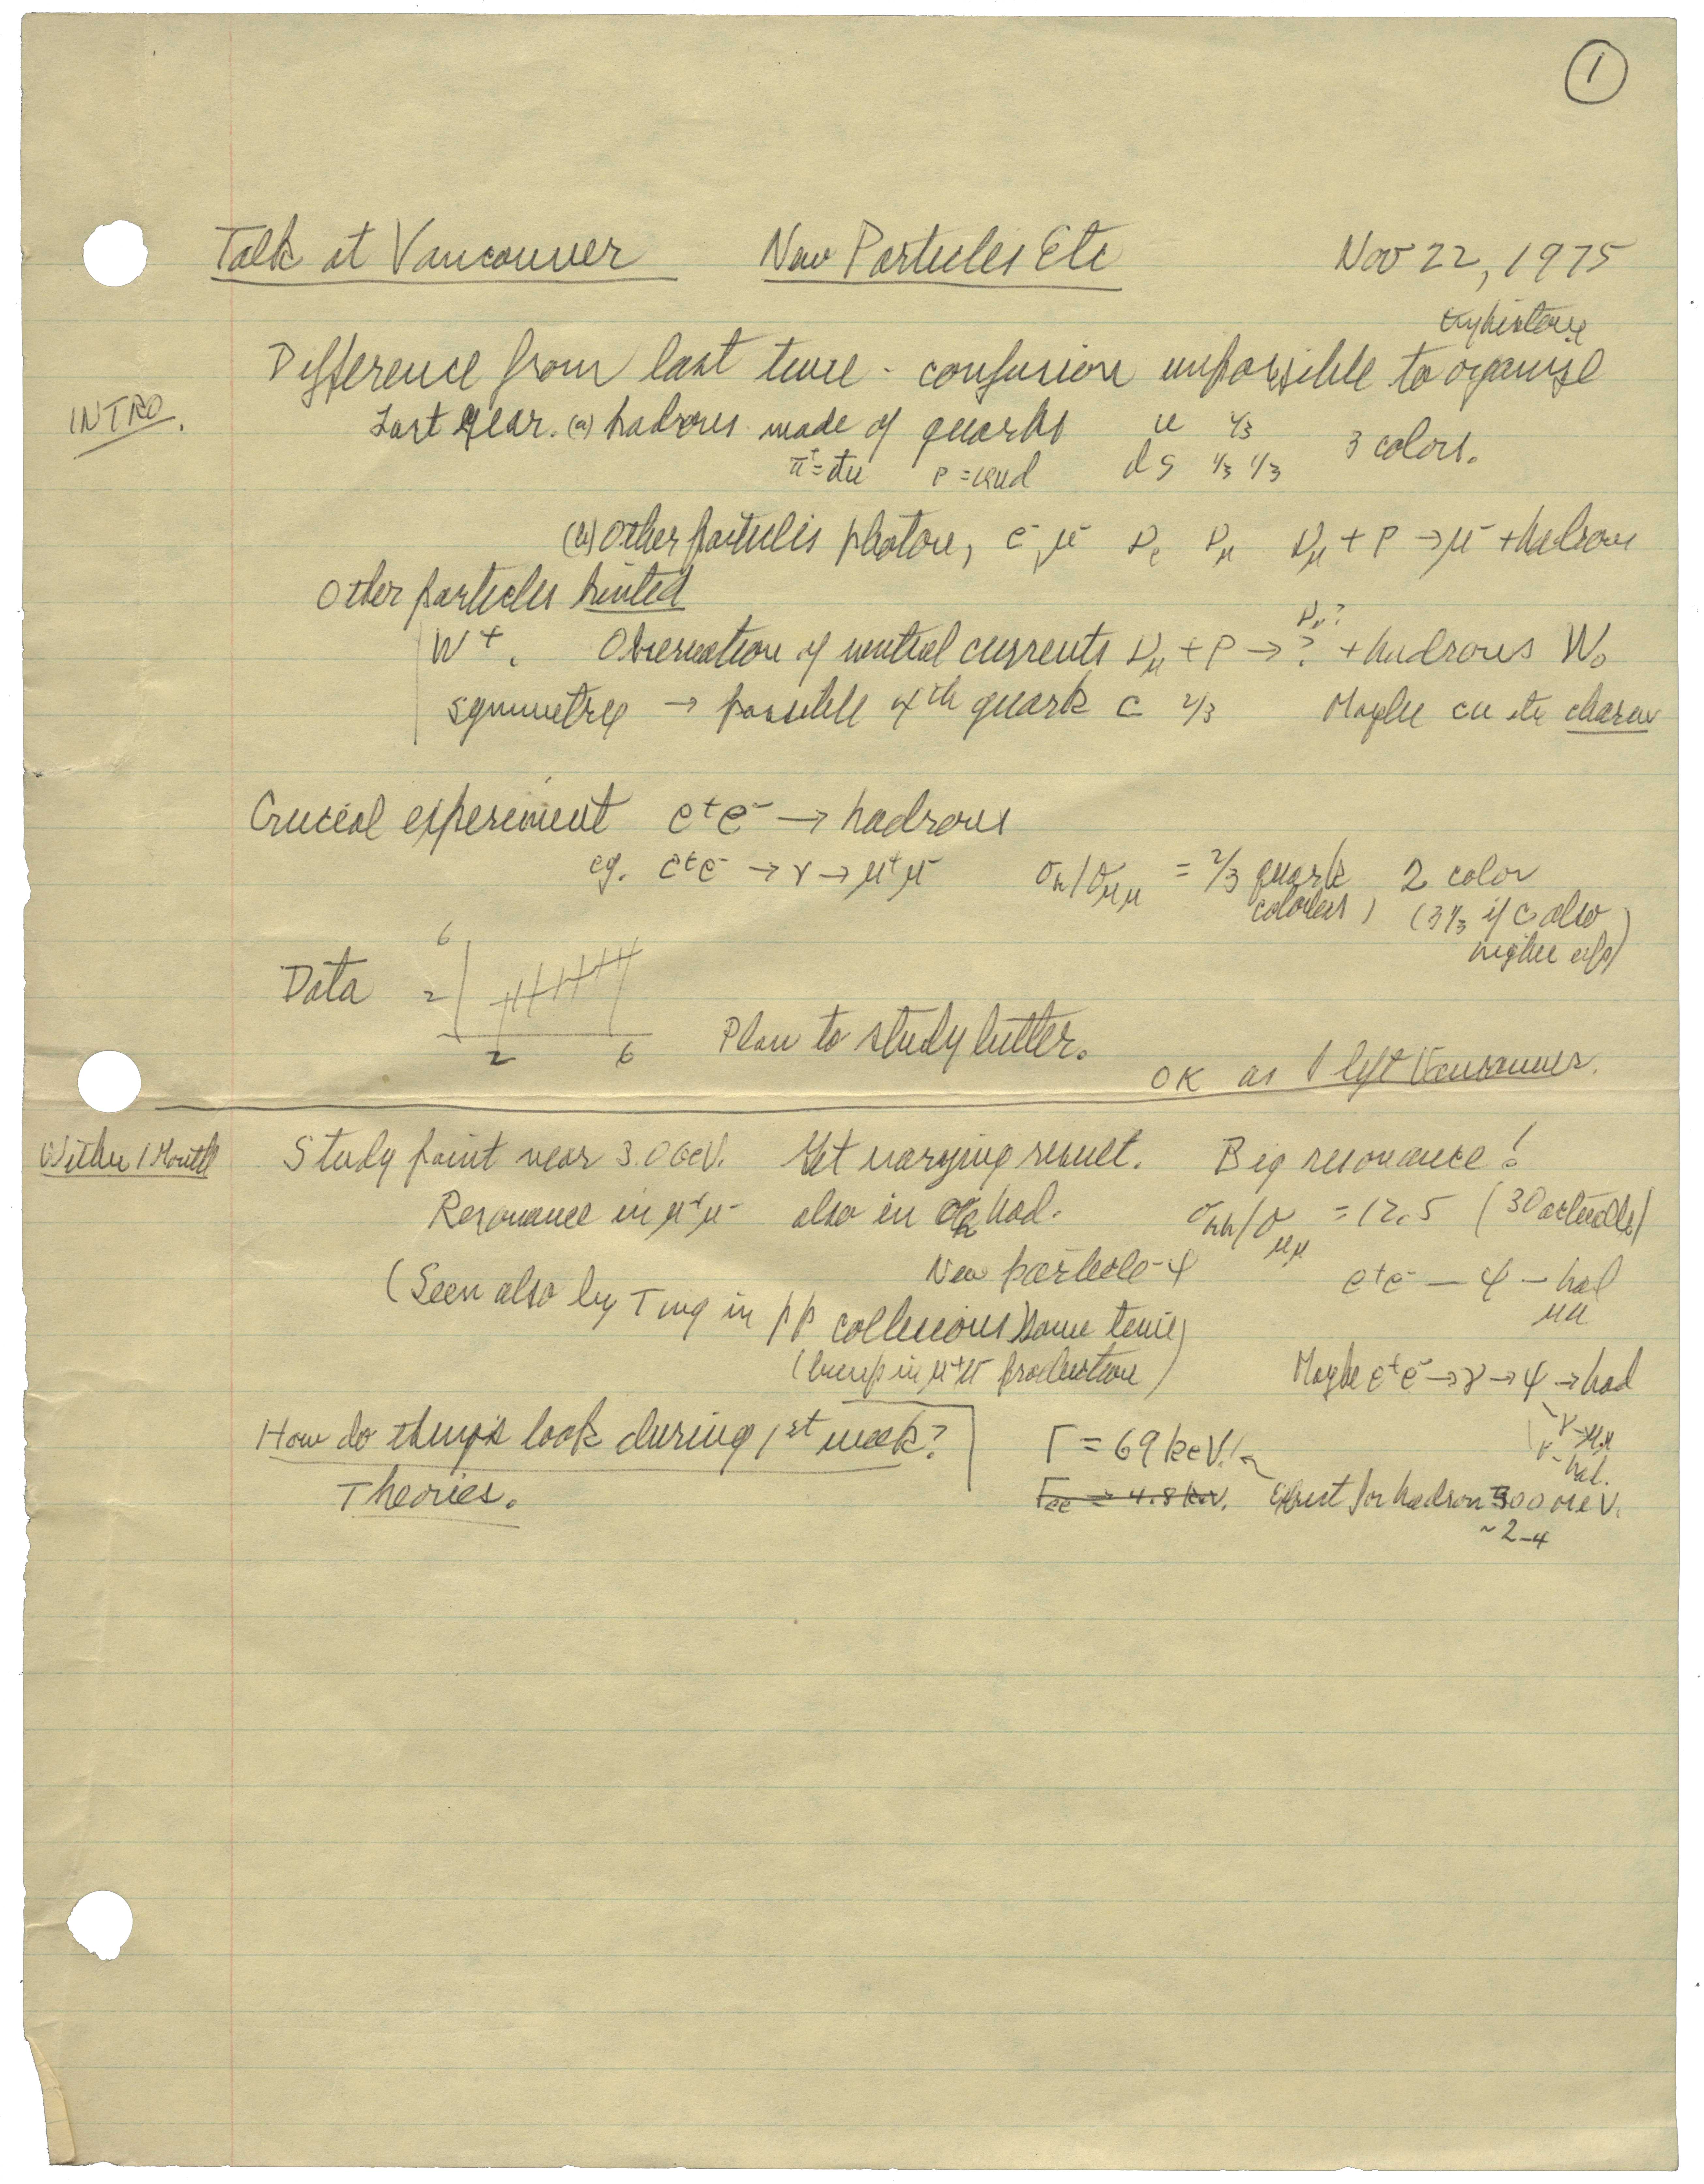 1
Talk at Vancouver New Particles Etc Nov 22, 1975
try history
Difference from last time - confusion impossible to organize
INTRO.
Last year. (a) hadrons made of quarks u 2/3 3 colors.
π⁺=d̄u P=uud d s 1/3 1/3
(b) Other particles photon, e⁻, μ⁻ ν_e ν_μ ν_μ + P → μ⁻ + hadrons
Other particles hinted
W⁺. Observation of neutral currents ν_μ + P → ? + hadrons W₀
ν_μ?
symmetry → possible 4th quark c 2/3 Maybe cū etc charm
Crucial experiment e⁺e⁻ → hadrons
eg. e⁺e⁻ → γ → μ⁺μ⁻ σ_h/σ_μμ = 2/3 quark 2 color
colorless) (3 1/3 if c also
higher
Data 6
2
2 6
Plan to study better.
OK as I left Vancouver.
Within 1 Month
Study point near 3.0 GeV. Get varying result. Big resonance!
Resonance in μ⁺μ⁻ also in had. σ_hh/σ_μμ = 12.5 (30 actually)
New particle - ψ e⁺e⁻ — ψ — had
μμ
(Seen also by Ting in pp collisions) same time)
(bump in μ⁺μ⁻ production) Maybe e⁺e⁻ → γ → ψ → had
γ → μμ
γ - had.
How do things look during 1st week? Γ = 69 keV!
Theories. Γ_ee = 4.8 keV. Expect for hadron 300 MeV.
~2-4